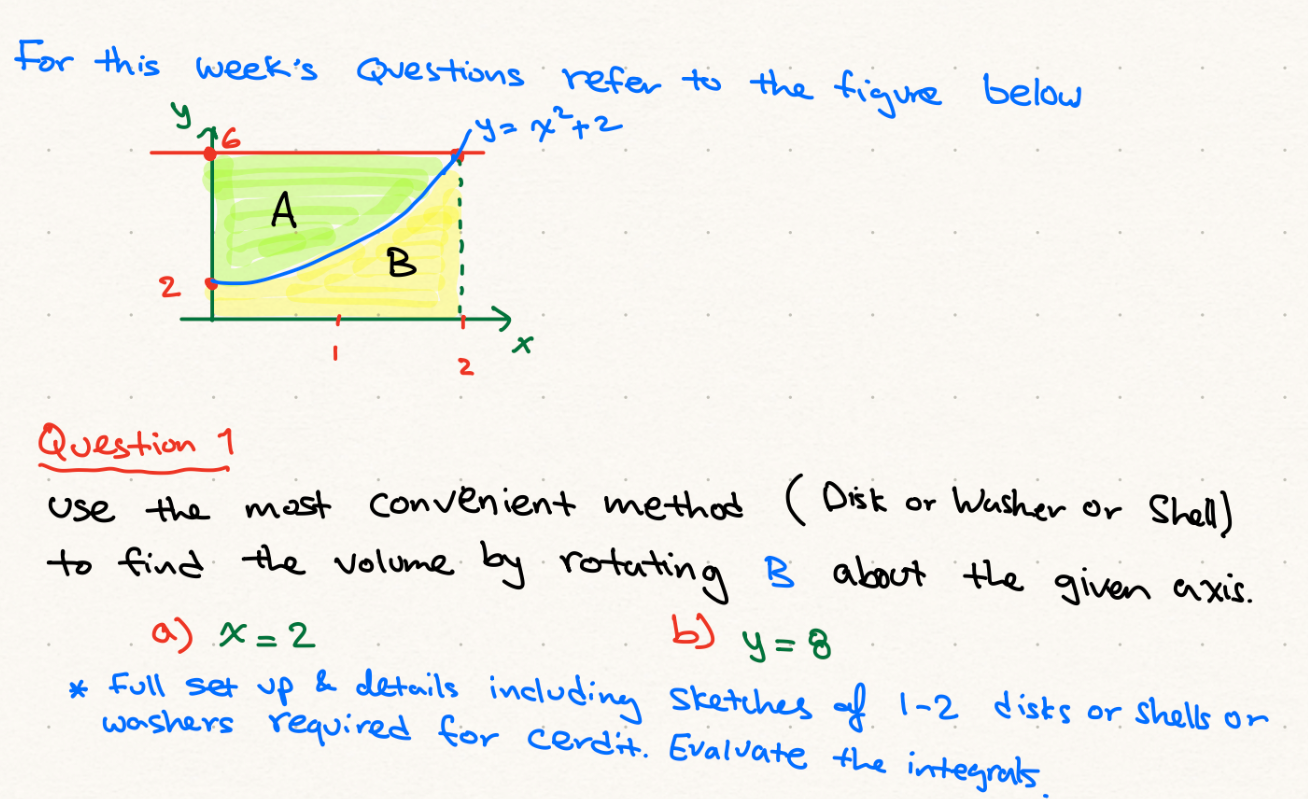 For this week's Questions refer to the figure below
y
6
y = x²+2
A
B
2
1
2
x
Question 1
use the most convenient method (Disk or Washer or Shell)
to find the volume by rotating B about the given axis.
a) x = 2
b) y = 8
* Full set up & details including sketches of 1-2 disks or shells or
washers required for cerdit. Evaluate the integrals.